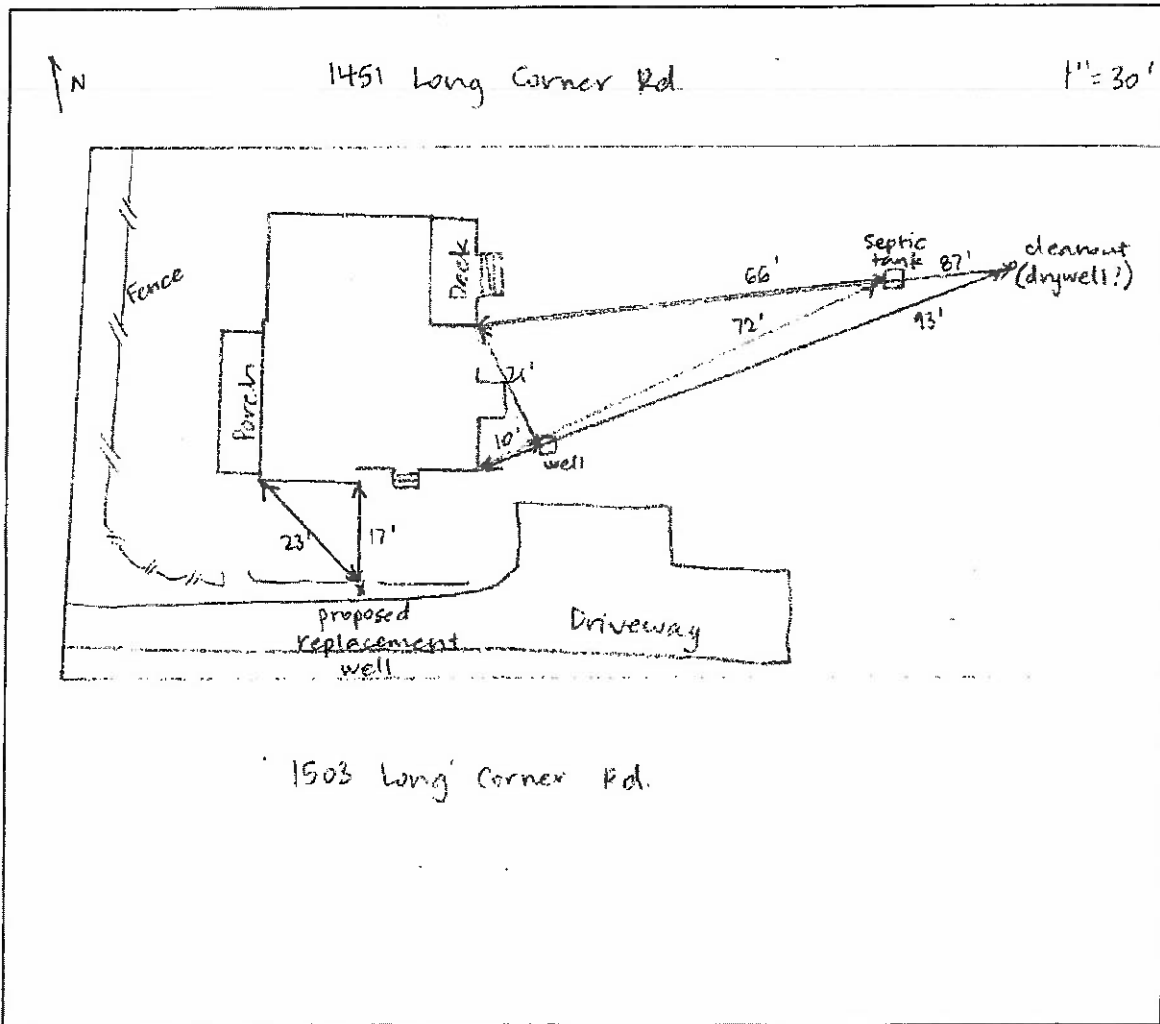 N
1451 Long Corner Rd.
1"=30'
Fence
Deck
Porch
66'
Septic
tank
87'
cleanout
(drywell?)
72'
93'
21'
10'
well
23'
17'
proposed
replacement
well
Driveway
1503 Long Corner Rd.